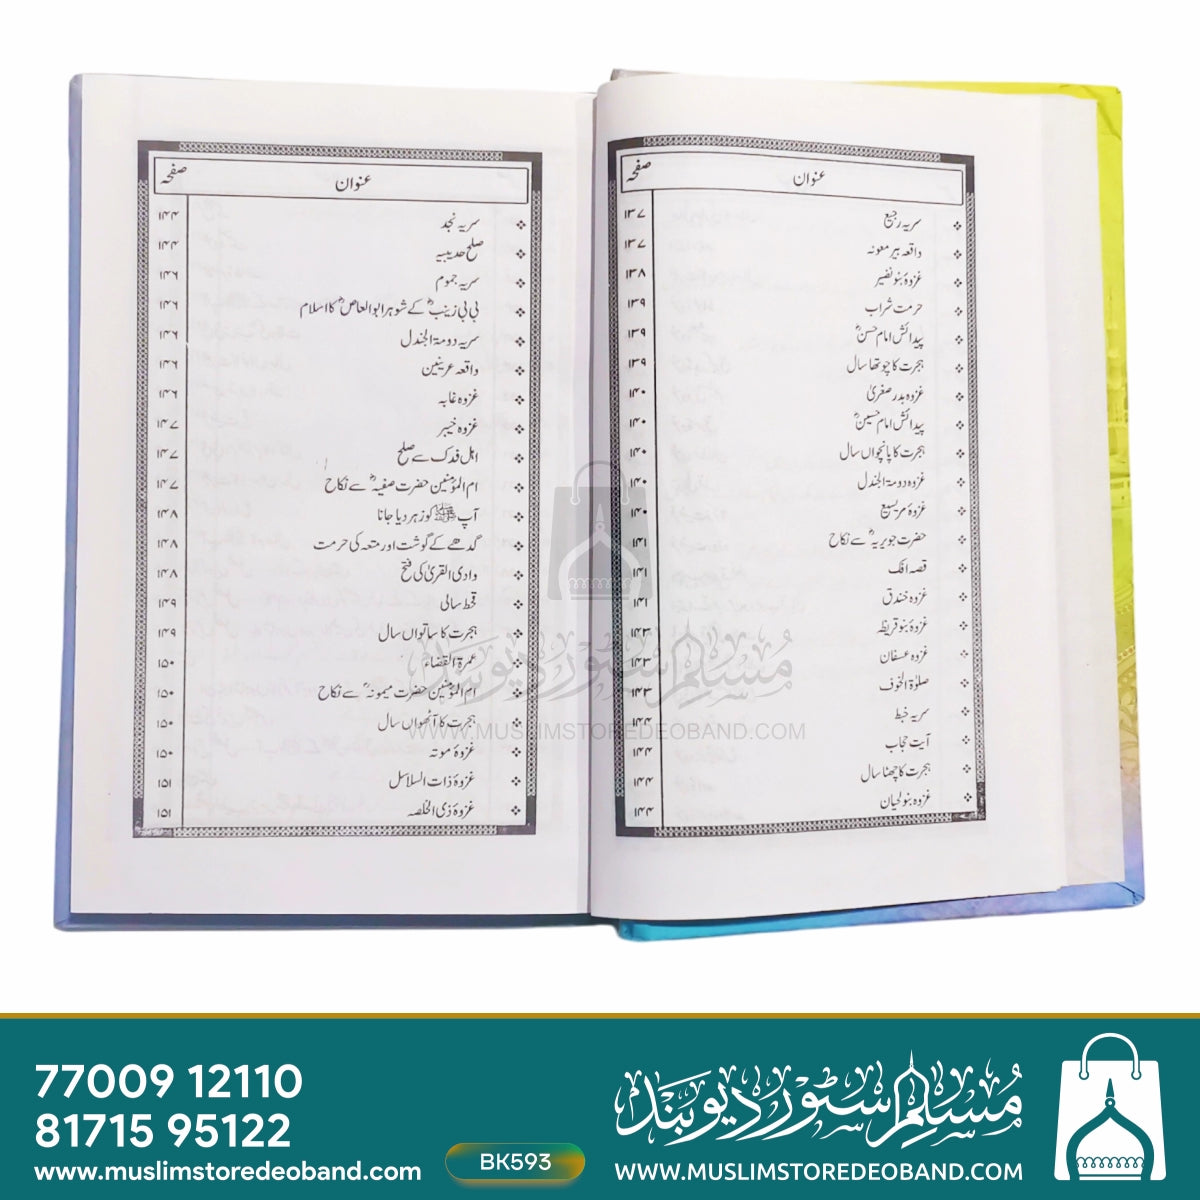 عنوان صفحہ
❖ سریہ رجیع ۱۳۷
❖ واقعہ بیر معونہ ۱۳۷
❖ غزوۂ بنو نضیر ۱۳۸
❖ حرمت شراب ۱۳۹
❖ پیدائش امام حسنؓ ۱۳۹
❖ ہجرت کا چوتھا سال ۱۳۹
❖ غزوہ بدر صغریٰ ۱۴۰
❖ پیدائش امام حسینؓ ۱۴۰
❖ ہجرت کا پانچواں سال ۱۴۰
❖ غزوہ دومۃ الجندل ۱۴۰
❖ غزوۂ مریسیع ۱۴۰
❖ حضرت جویریہؓ سے نکاح ۱۴۱
❖ قصہ افک ۱۴۱
❖ غزوہ خندق ۱۴۱
❖ غزوہ بنو قریظہ ۱۴۳
❖ غزوہ عسفان ۱۴۳
❖ صلوٰۃ الخوف ۱۴۳
❖ سریہ خبط ۱۴۴
❖ آیت حجاب ۱۴۴
❖ ہجرت کا چھٹا سال ۱۴۴
❖ غزوہ بنو لحیان ۱۴۴
عنوان صفحہ
❖ سریہ نجد ۱۴۴
❖ صلح حدیبیہ ۱۴۴
❖ سریہ جموم ۱۴۶
❖ بی بی زینبؓ کے شوہر ابوالعاصؓ کا اسلام ۱۴۶
❖ سریہ دومۃ الجندل ۱۴۶
❖ واقعہ عرینین ۱۴۶
❖ غزوہ غابہ ۱۴۶
❖ غزوہ خیبر ۱۴۷
❖ اہل فدک سے صلح ۱۴۷
❖ ام المؤمنین حضرت صفیہؓ سے نکاح ۱۴۷
❖ آپ ﷺ کو زہر دیا جانا ۱۴۸
❖ گدھے کے گوشت اور متعہ کی حرمت ۱۴۸
❖ وادی القریٰ کی فتح ۱۴۸
❖ قحط سالی ۱۴۹
❖ ہجرت کا ساتواں سال ۱۴۹
❖ عمرۃ القضاء ۱۵۰
❖ ام المؤمنین حضرت میمونہؓ سے نکاح ۱۵۰
❖ ہجرت کا آٹھواں سال ۱۵۰
❖ غزوۂ موتہ ۱۵۰
❖ غزوۂ ذات السلاسل ۱۵۱
❖ غزوۂ ذی الخلصہ ۱۵۱
مسلم سٹور دیوبند
WWW.MUSLIMSTOREDEOBAND.COM
77009 12110
81715 95122
www.muslimstoredeoband.com
BK593
مسلم سٹور دیوبند
WWW.MUSLIMSTOREDEOBAND.COM